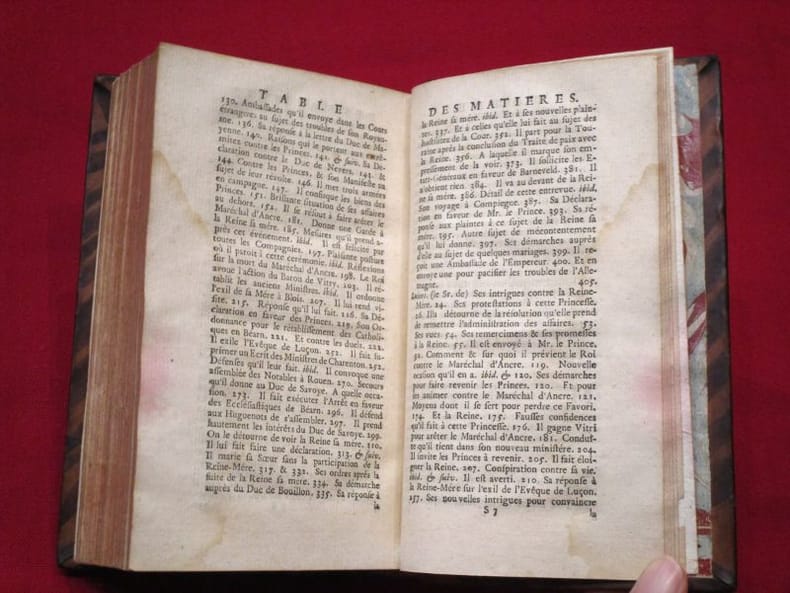 TABLE
130. Ambassades qu'il envoye dans les Cours
étrangéres au sujet des troubles de son Royau-
me. 136. Sa réponse à la lettre du Duc de Ma-
yenne. 140. Raisons qui le portent aux extré-
mitez contre les Princes. 141. & suiv. Sa Dé-
claration contre le Duc de Nevers. 143. &
144. Contre les Princes, & son Manifeste au
sujet de leur révolte. 146. Il met trois armées
en campagne. 147. Il confisque les biens des
Princes. 151. Brillante situation de ses affaires
au dehors. 152. Il se résout à faire arrêter le
Maréchal d'Ancre. 181. Donne une Garde à
la Reine sa mére. 185. Mesures qu'il prend a-
près cet événement. ibid. Il est félicité par
toutes les Compagnies. 197. Plaisante posture
où il paroit à cette cérémonie. ibid. Réflexions
sur la mort du Maréchal d'Ancre. 198. Le Roi
avoue l'action du Baron de Vitry. 203. Il ré-
tablit les anciens Ministres. ibid. Il ordonne
l'exil de sa Mére à Blois. 207. Il lui rend vi-
site. 215. Réponse qu'il lui fait. 216. Sa Dé-
claration en faveur des Princes. 219. Son Or-
donnance pour le rétablissement des Catholi-
ques en Béarn. 221. Et contre les duels. 222.
Il exile l'Evêque de Luçon. 252. Il fait su-
primer un Ecrit des Ministres de Charenton. 252.
Défenses qu'il leur fait. ibid. Il convoque une
assemblée des Notables à Rouen. 270. Secours
qu'il donne au Duc de Savoye. A quelle occa-
sion. 273. Il fait exécuter l'Arrêt en faveur
des Ecclésiastiques de Béarn. 296. Il défend
aux Huguenots de s'assembler. 297. Il prend
hautement les intérêts du Duc de Savoye. 299.
On le détourne de voir la Reine sa mére. 310.
Il lui fait faire une déclaration. 313. & suiv.
Il marie sa Sœur sans la participation de la
Reine-Mére. 317. & 332. Ses ordres après la
fuite de la Reine sa mére. 334. Sa démarche
auprès du Duc de Bouillon. 335. Sa réponse à
la
DES MATIERES.
la Reine sa mére. ibid. Et à ses nouvelles plain-
tes. 337. Et à celles qu'elle lui fait au sujet des
hostilitez de la Cour. 352. Il part pour la Tou-
raine après la conclusion du Traite de paix avec
la Reine. 356. A laquelle il marque son em-
pressement de la voir. 373. Il sollicite les E-
tats-Généraux en faveur de Barneveld. 381. Il
n'obtient rien. 384. Il va au devant de la Rei-
ne sa mére. 386. Détail de cette entrevue. ibid.
Son voyage à Compiegne. 387. Sa Déclara-
tion en faveur de Mr. le Prince. 393. Sa ré-
ponse aux plaintes à ce sujet de la Reine sa
mére. 395. Autre sujet de mécontentement
qu'il lui donne. 397. Ses démarches auprès
d'elle au sujet de quelques mariages. 399. Il re-
çoit une Ambassade de l'Empereur. 400. Et en
envoye une pour pacifier les troubles de l'Alle-
magne. 405.
(le Sr. de) Ses intrigues contre la Reine-
Mére. 24. Ses protestations à cette Princesse.
26. Il la détourne de la résolution qu'elle prend
de remettre l'administration des affaires. 53.
Ses vues. 54. Ses remercimens & ses promesses
à la Reine. 55. Il est envoyé à Mr. le Prince.
92. Comment & sur quoi il prévient le Roi
contre le Maréchal d'Ancre. 119. Nouvelle
occasion qu'il en a. ibid. & 120. Ses démarches
pour faire revenir les Princes. 120. Et pour
les animer contre le Maréchal d'Ancre. 121.
Moyens dont il se sert pour perdre ce Favori,
174. Et la Reine. 175. Fausses confidences
qu'il fait à cette Princesse. 176. Il gagne Vitri
pour arêter le Maréchal d'Ancre. 181. Condui-
te qu'il tient dans son nouveau ministére. 204.
Il invite les Princes à revenir. 205. Il fait éloi-
gner la Reine. 207. Conspiration contre sa vie.
ibid. & suiv. Il est averti. 210. Sa réponse à
la Reine-Mére sur l'exil de l'Evêque de Luçon.
257. Ses nouvelles intrigues pour convaincre
S 7 la